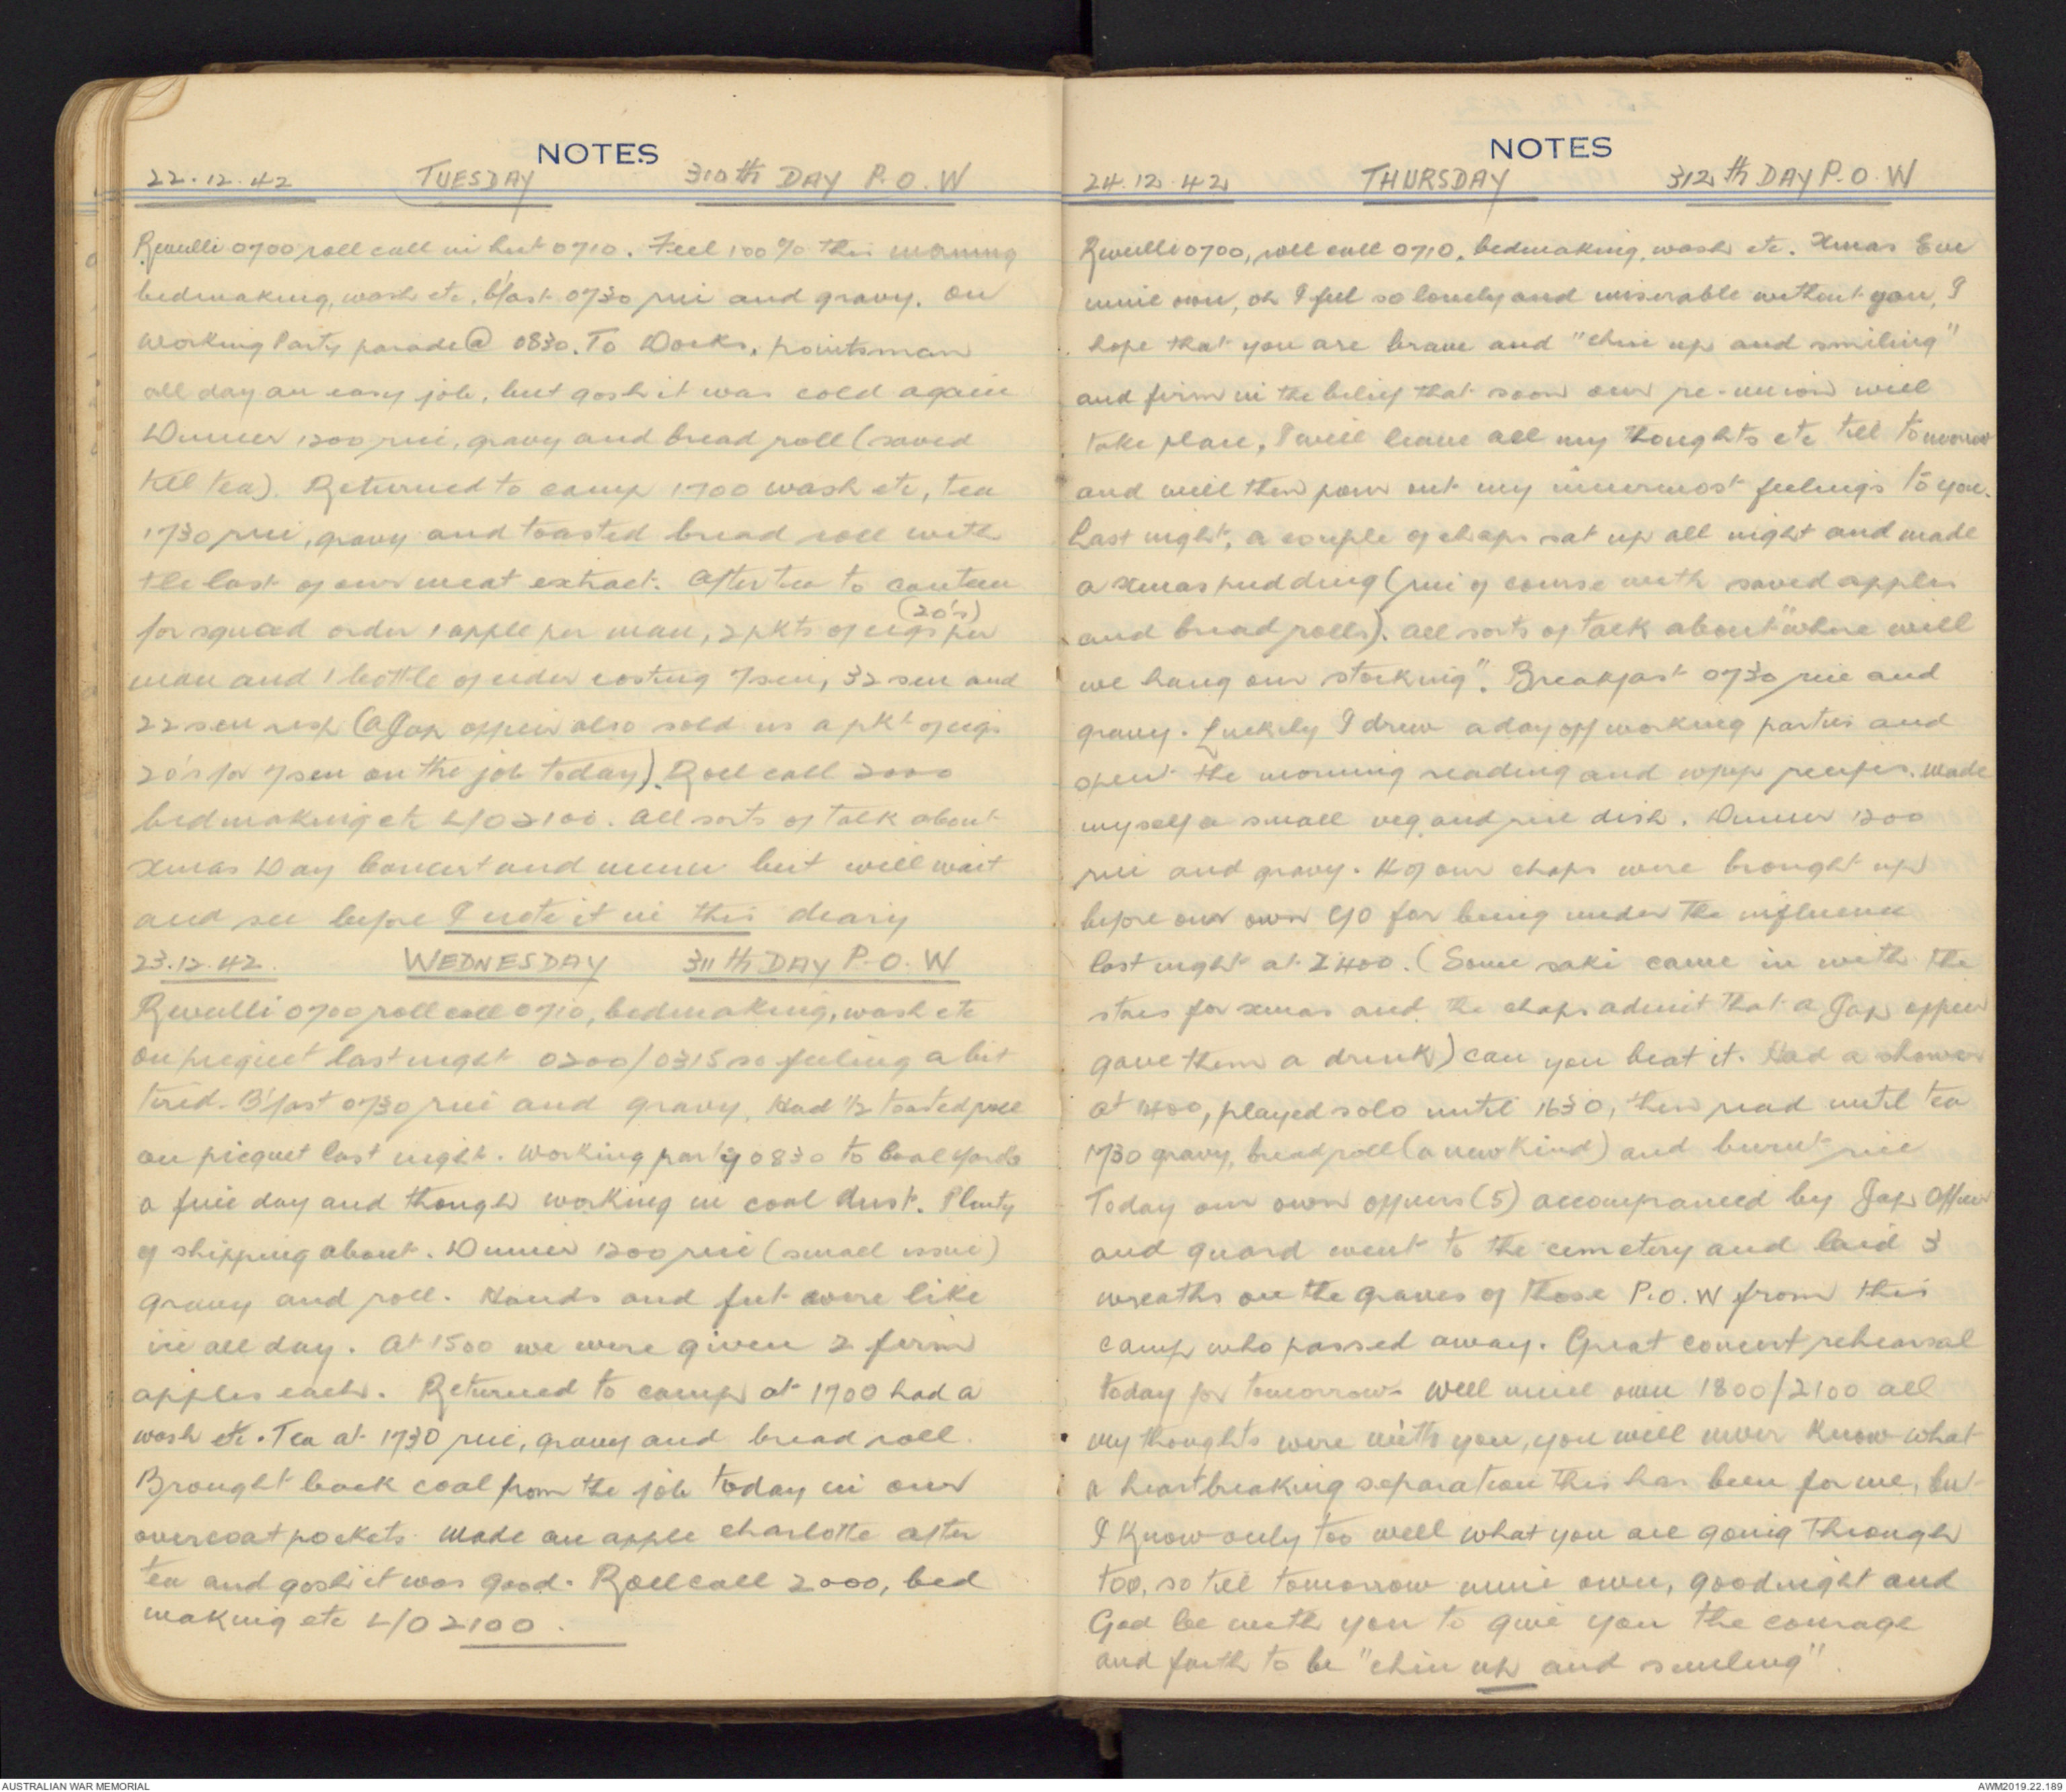 NOTES
22.12.42 TUESDAY 310th DAY P.O.W
Reveulli 0700 roll call in hut 0710. Feel 100% this morning
bedmaking, wash etc, b/fast 0730 rice and gravy. On
Working Party parade @ 0830. To Docks, pointsman
all day an easy job, but gosh it was cold again
Dinner 1200 rice, gravy and bread roll (saved
till tea). Returned to camp 1700 wash etc, tea
1730 rice, gravy and toasted bread roll with
the last of our meat extract. After tea to canteen
(20's)
for squad order 1 apple per man, 2 pkts of cigs per
man and 1 bottle of cider costing 7 sen, 32 sen and
22 sen resp (A Jap officer also sold us a pkt of cigs
20's for 7 sen on the job today). Roll call 2000
bedmaking etc L/O 2100. All sorts of talk about
Xmas Day Concert and menu but will wait
and see before I note it in this diary
23.12.42. WEDNESDAY 311th DAY P.O.W
Reveulli 0700 roll call 0710, bedmaking, wash etc
on picquet last night 0200/0315 so feeling a bit
tired. B'fast 0730 rice and gravy. Had ½ toasted roll
on picquet last night. Working party 0830 to Coal Yards
a fine day and though working in coal dust. Plenty
of shipping about. Dinner 1200 rice (small issue)
gravy and roll. Hands and feet were like
ice all day. At 1500 we were given 2 firm
apples each. Returned to camp at 1700 had a
wash etc. Tea at 1730 rice, gravy and bread roll.
Brought back coal from the job today in our
overcoat pockets. Made an apple charlotte after
tea and gosh it was good. Roll call 2000, bed
making etc L/O 2100.
NOTES
24.12.42 THURSDAY 312th DAY P.O.W
Reveulli 0700, roll call 0710, bedmaking, wash etc. Xmas Eve
mine own, oh I feel so lonely and miserable without you, I
hope that you are brave and "chin up and smiling"
and firm in the belief that soon our re-union will
take place, I will leave all my thoughts etc till tomorrow
and will then pour out my innermost feelings to you.
Last night, a couple of chaps sat up all night and made
a Xmas pudding (rice of course with saved apples
and bread rolls). All sorts of talk about "where will
we hang our stocking". Breakfast 0730 rice and
gravy. Luckily I drew a day off working parties and
spent the morning reading and copying recipes. Made
myself a small veg. and rice dish. Dinner 1200
rice and gravy. 4 of our chaps were brought up
before our own C/O for being under the influence
last night at 2400. (Some saki came in with the
stores for xmas and the chaps admit that a Jap officer
gave them a drink) can you beat it. Had a shower
at 1400, played solo until 1630, then read until tea
1730 gravy, bread roll (a new kind) and burnt rice
Today our own officers (5) accompanied by Jap Officer
and guard went to the cemetery and laid 3
wreaths on the graves of those P.O.W from this
camp who passed away. Great concert rehearsal
today for tomorrow. Well mine own 1800/2100 all
my thoughts were with you, you will never know what
a heartbreaking separation this has been for me, but
I know only too well what you are going through
too, so till tomorrow mine own, goodnight and
God be with you to give you the courage
and faith to be "chin up and smiling".
AUSTRALIAN WAR MEMORIAL
AWM2019.22.189